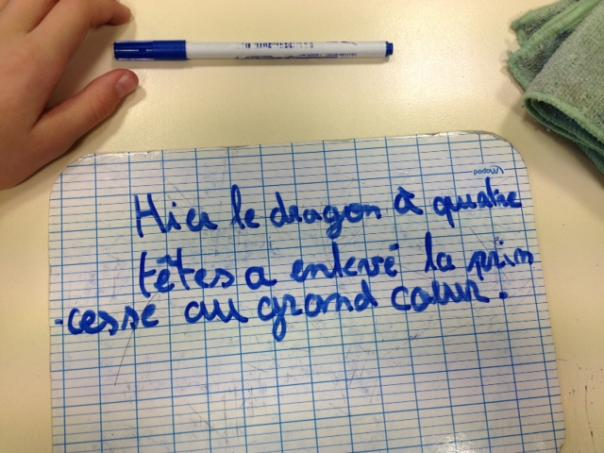 Maped
Hier le dragon à quatre
têtes a enlevé la prin
-cesse au grand cœur.